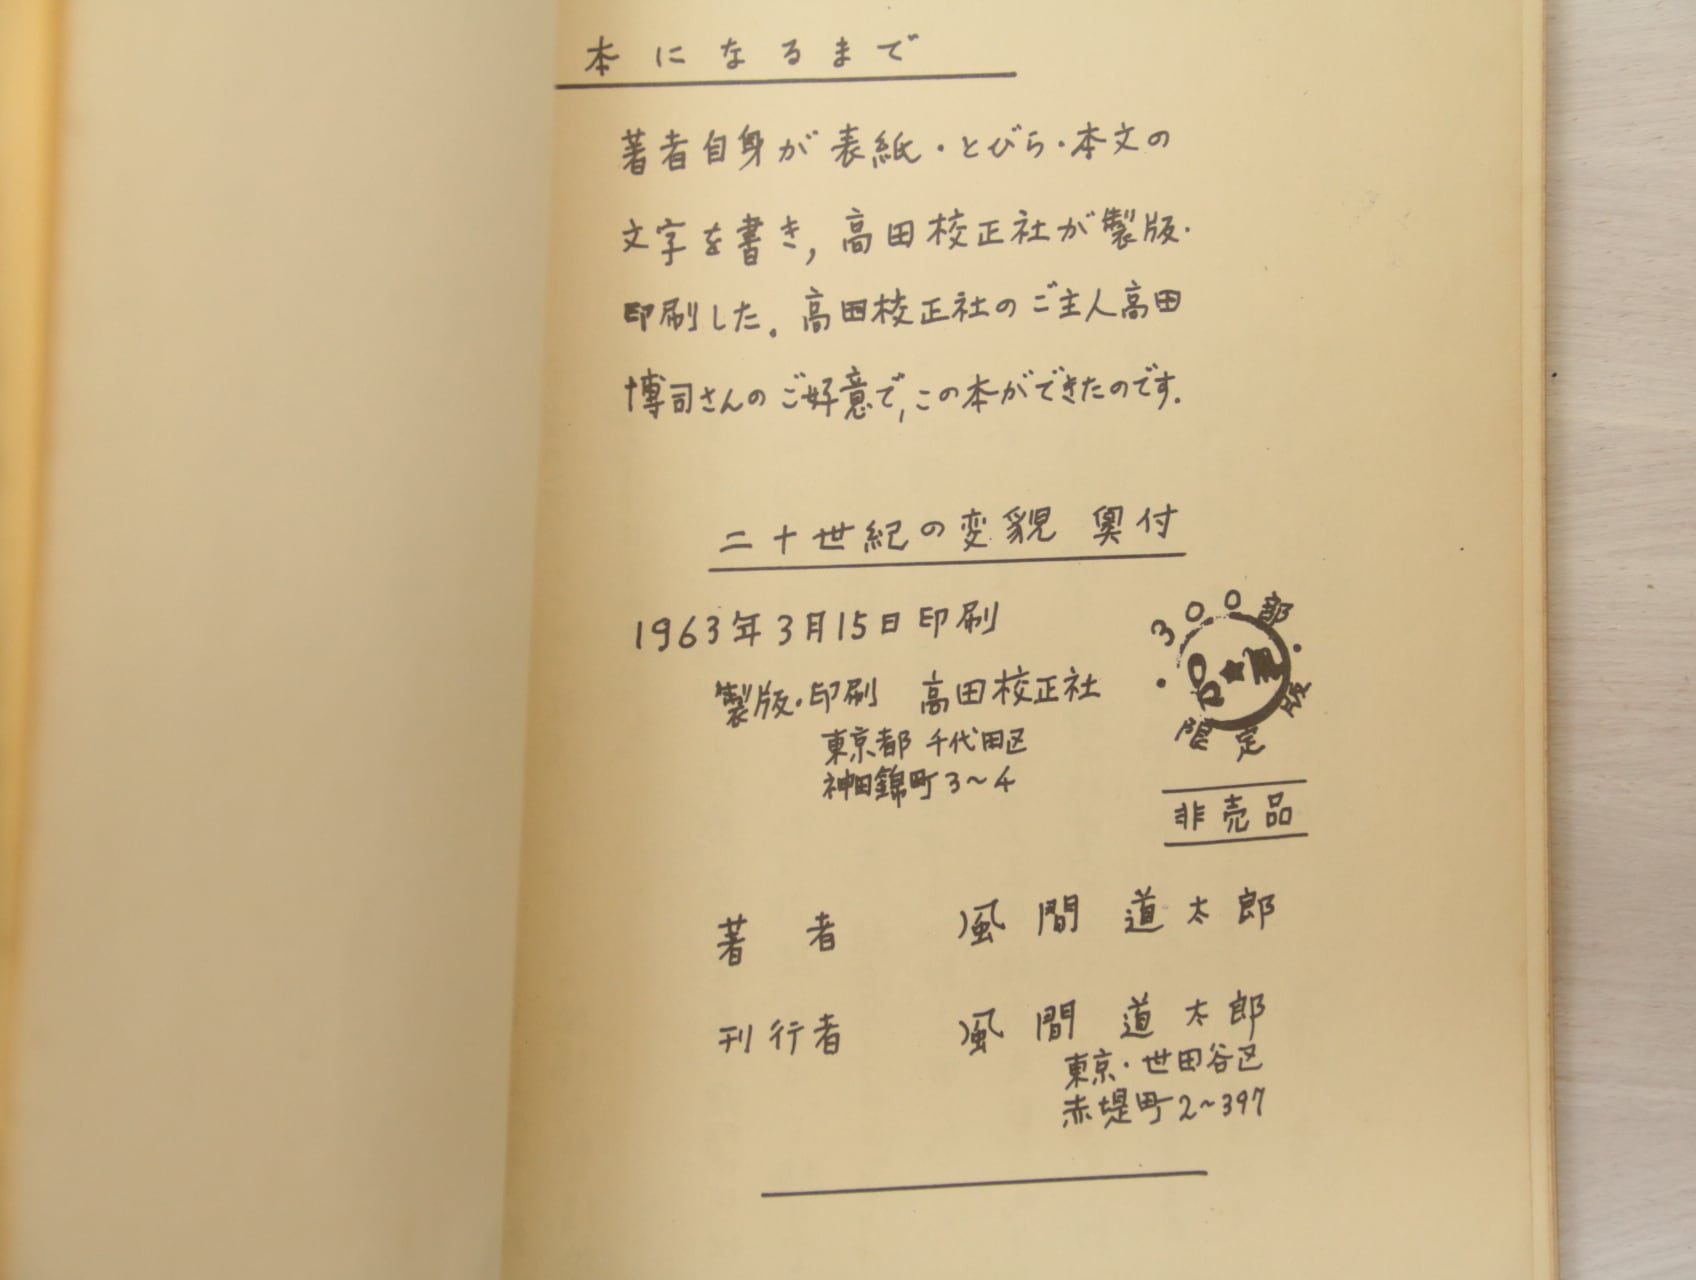 本になるまで
著者自身が表紙・とびら・本文の
文字を書き,高田校正社が製版・
印刷した.高田校正社のご主人高田
博司さんのご好意で,この本ができたのです.
二十世紀の変貌 奥付
1963年3月15日印刷
製版・印刷 高田校正社
東京都千代田区
神田錦町3~4
・300部・
限定版
非売品
著者 風間道太郎
刊行者 風間道太郎
東京・世田谷区
赤堤町2~397